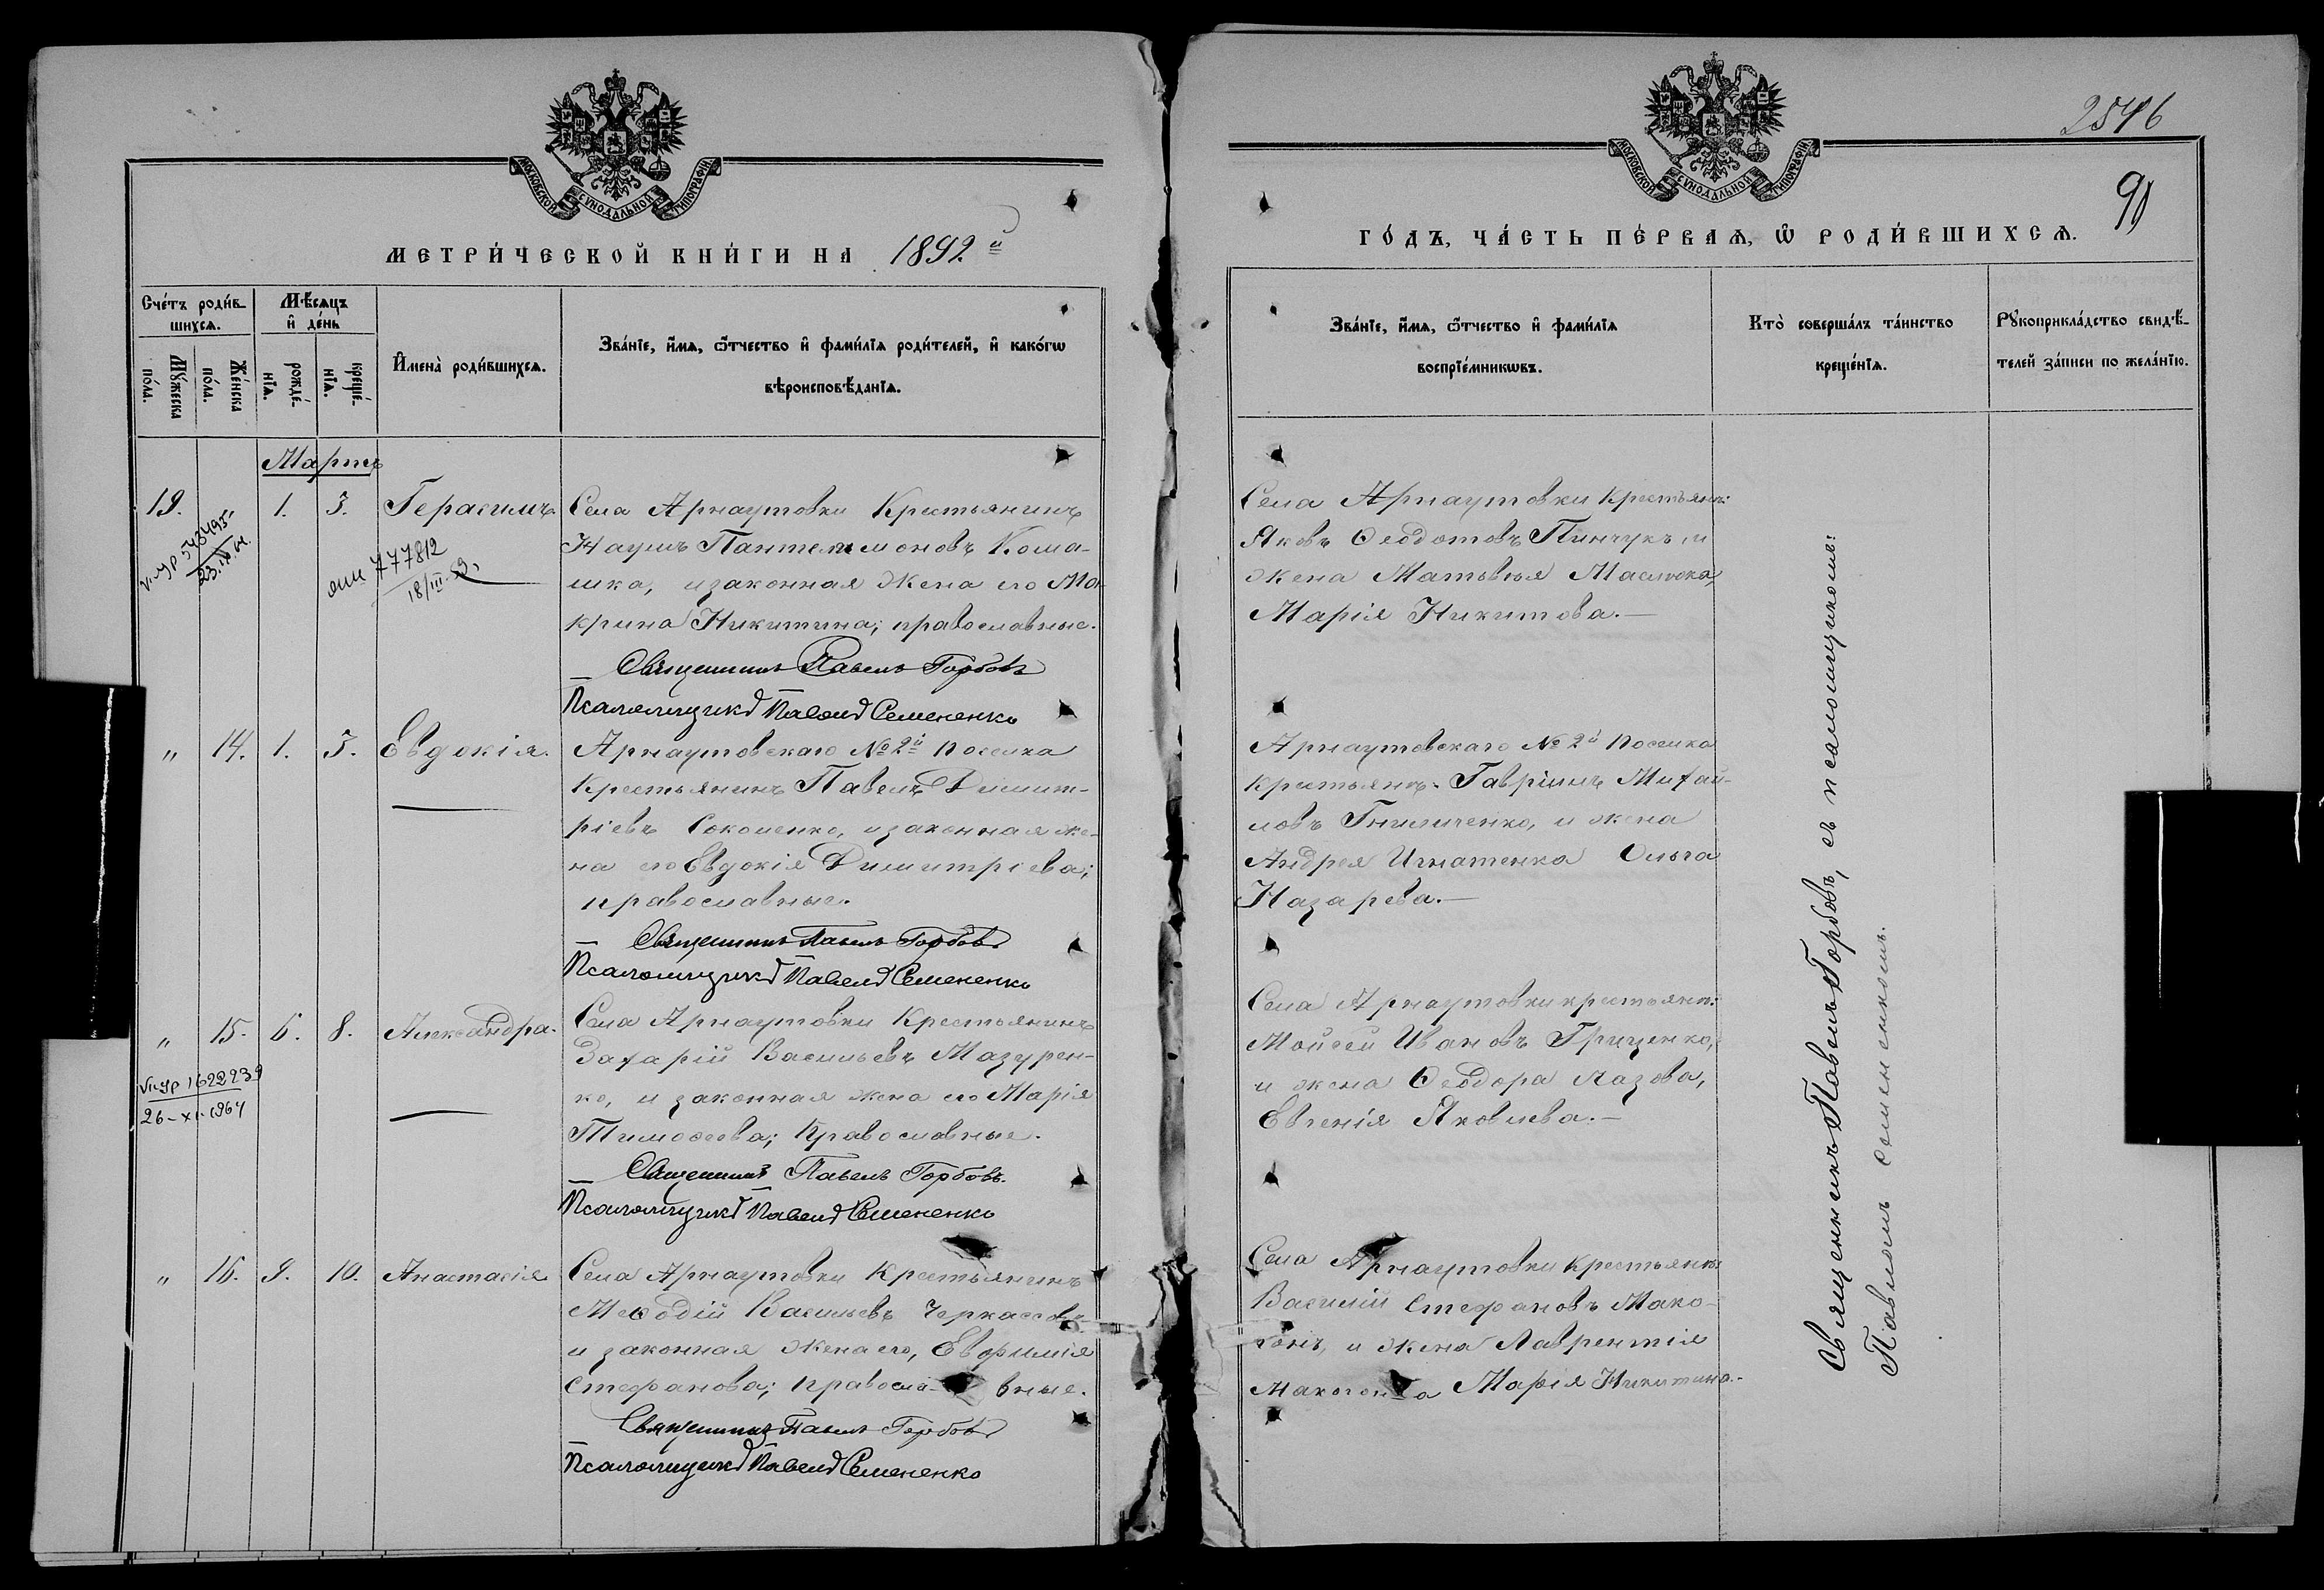 МОСКОВСКОЙ СѴНОДАЛЬНОЙ ТИПОГРАФІИ
МЕТРИ́ЧЕСКОЙ КНИ́ГИ НА 1892й
Сче́тъ роди́в-
шихсѧ.
Мѣ́сѧцъ
и҆ де́нь
Мꙋ́жеска
по́ла.
Же́нска
по́ла.
рожде́-
нїѧ.
креще́-
нїѧ.
И҆мена̀ роди́вшихсѧ.
Зва́нїе, и҆́мѧ, ѻ҆́тчество и҆ фами́лїѧ роди́телей, и҆ како́гѡ
вѣроисповѣ́данїѧ.
Мартъ
19.
1.
3.
Герасимъ
Села Арнаутовки Крестьянинъ
Наумъ Пантелимоновъ Кома-
шка, и законная жена его Ма-
крина Никитина; православные.
543495
23.IX.64.
777812
18/III.59.
Священникъ Павелъ Горбовъ
Псаломщикъ Павелъ Семененко
„
14.
1.
3.
Евдокія.
Арнаутовскаго № 2й поселка
крестьянинъ Павелъ Димит-
ріевъ Соколенко, и законная же-
на его Евдокія Димитріева;
православные.
Священникъ Павелъ Горбовъ
Псаломщикъ Павелъ Семененко
„
15.
6.
8.
Александра.
Села Арнаутовки Крестьянинъ
Захарій Васильевъ Мазурен-
ко, и законная жена его Марія
Тимофеева; православные.
1622239
26-XI-1964
Священникъ Павелъ Горбовъ.
Псаломщикъ Павелъ Семененко
„
16.
9.
10.
Анастасія
Села Арнаутовки Крестьянинъ
Меѳодій Васильевъ Черкассовъ
и законная жена его, Евфимія
Стефанова; правосла- вные.
Священникъ Павелъ Горбовъ
Псаломщикъ Павелъ Семененко
2546
МОСКОВСКОЙ СѴНОДАЛЬНОЙ ТИПОГРАФІИ
90
ГО́ДЪ, ЧА́СТЬ ПЕ́РВАѦ, Ѡ҆ РОДИ́ВШИХСѦ.
Зва́нїе, и҆́мѧ, ѻ҆́тчество и҆ фами́лїѧ
воспрїе́мникѡвъ.
Кто̀ соверша́лъ та́инство
креще́нїѧ.
Рꙋкоприкла́дство свидѣ́-
телей за́писи по жела́нїю.
Села Арнаутовки крестьянъ:
Яковъ Ѳеодотовъ Пинчукъ, и
жена Матвѣя Маслюка,
Марія Никитова.—
Арнаутовскаго № 2й поселка
крестьянъ: Гавріилъ Михай-
ловъ Гниличенко, и жена
Андрея Игнатенка Ольга
Назарева.—
Села Арнаутовки крестьянъ:
Мойсей Ивановъ Гриценко,
и жена Ѳеодора Лазова,
Евгенія Яковлева.—
Села Арнаутовки крестьянъ:
Василій Стефановъ Мако-
гонъ, и жена Лаврентія
Макогона Марія Никитина.—
Священникъ Павелъ Горбовъ, съ псаломщикомъ:
Павломъ Семененкомъ.